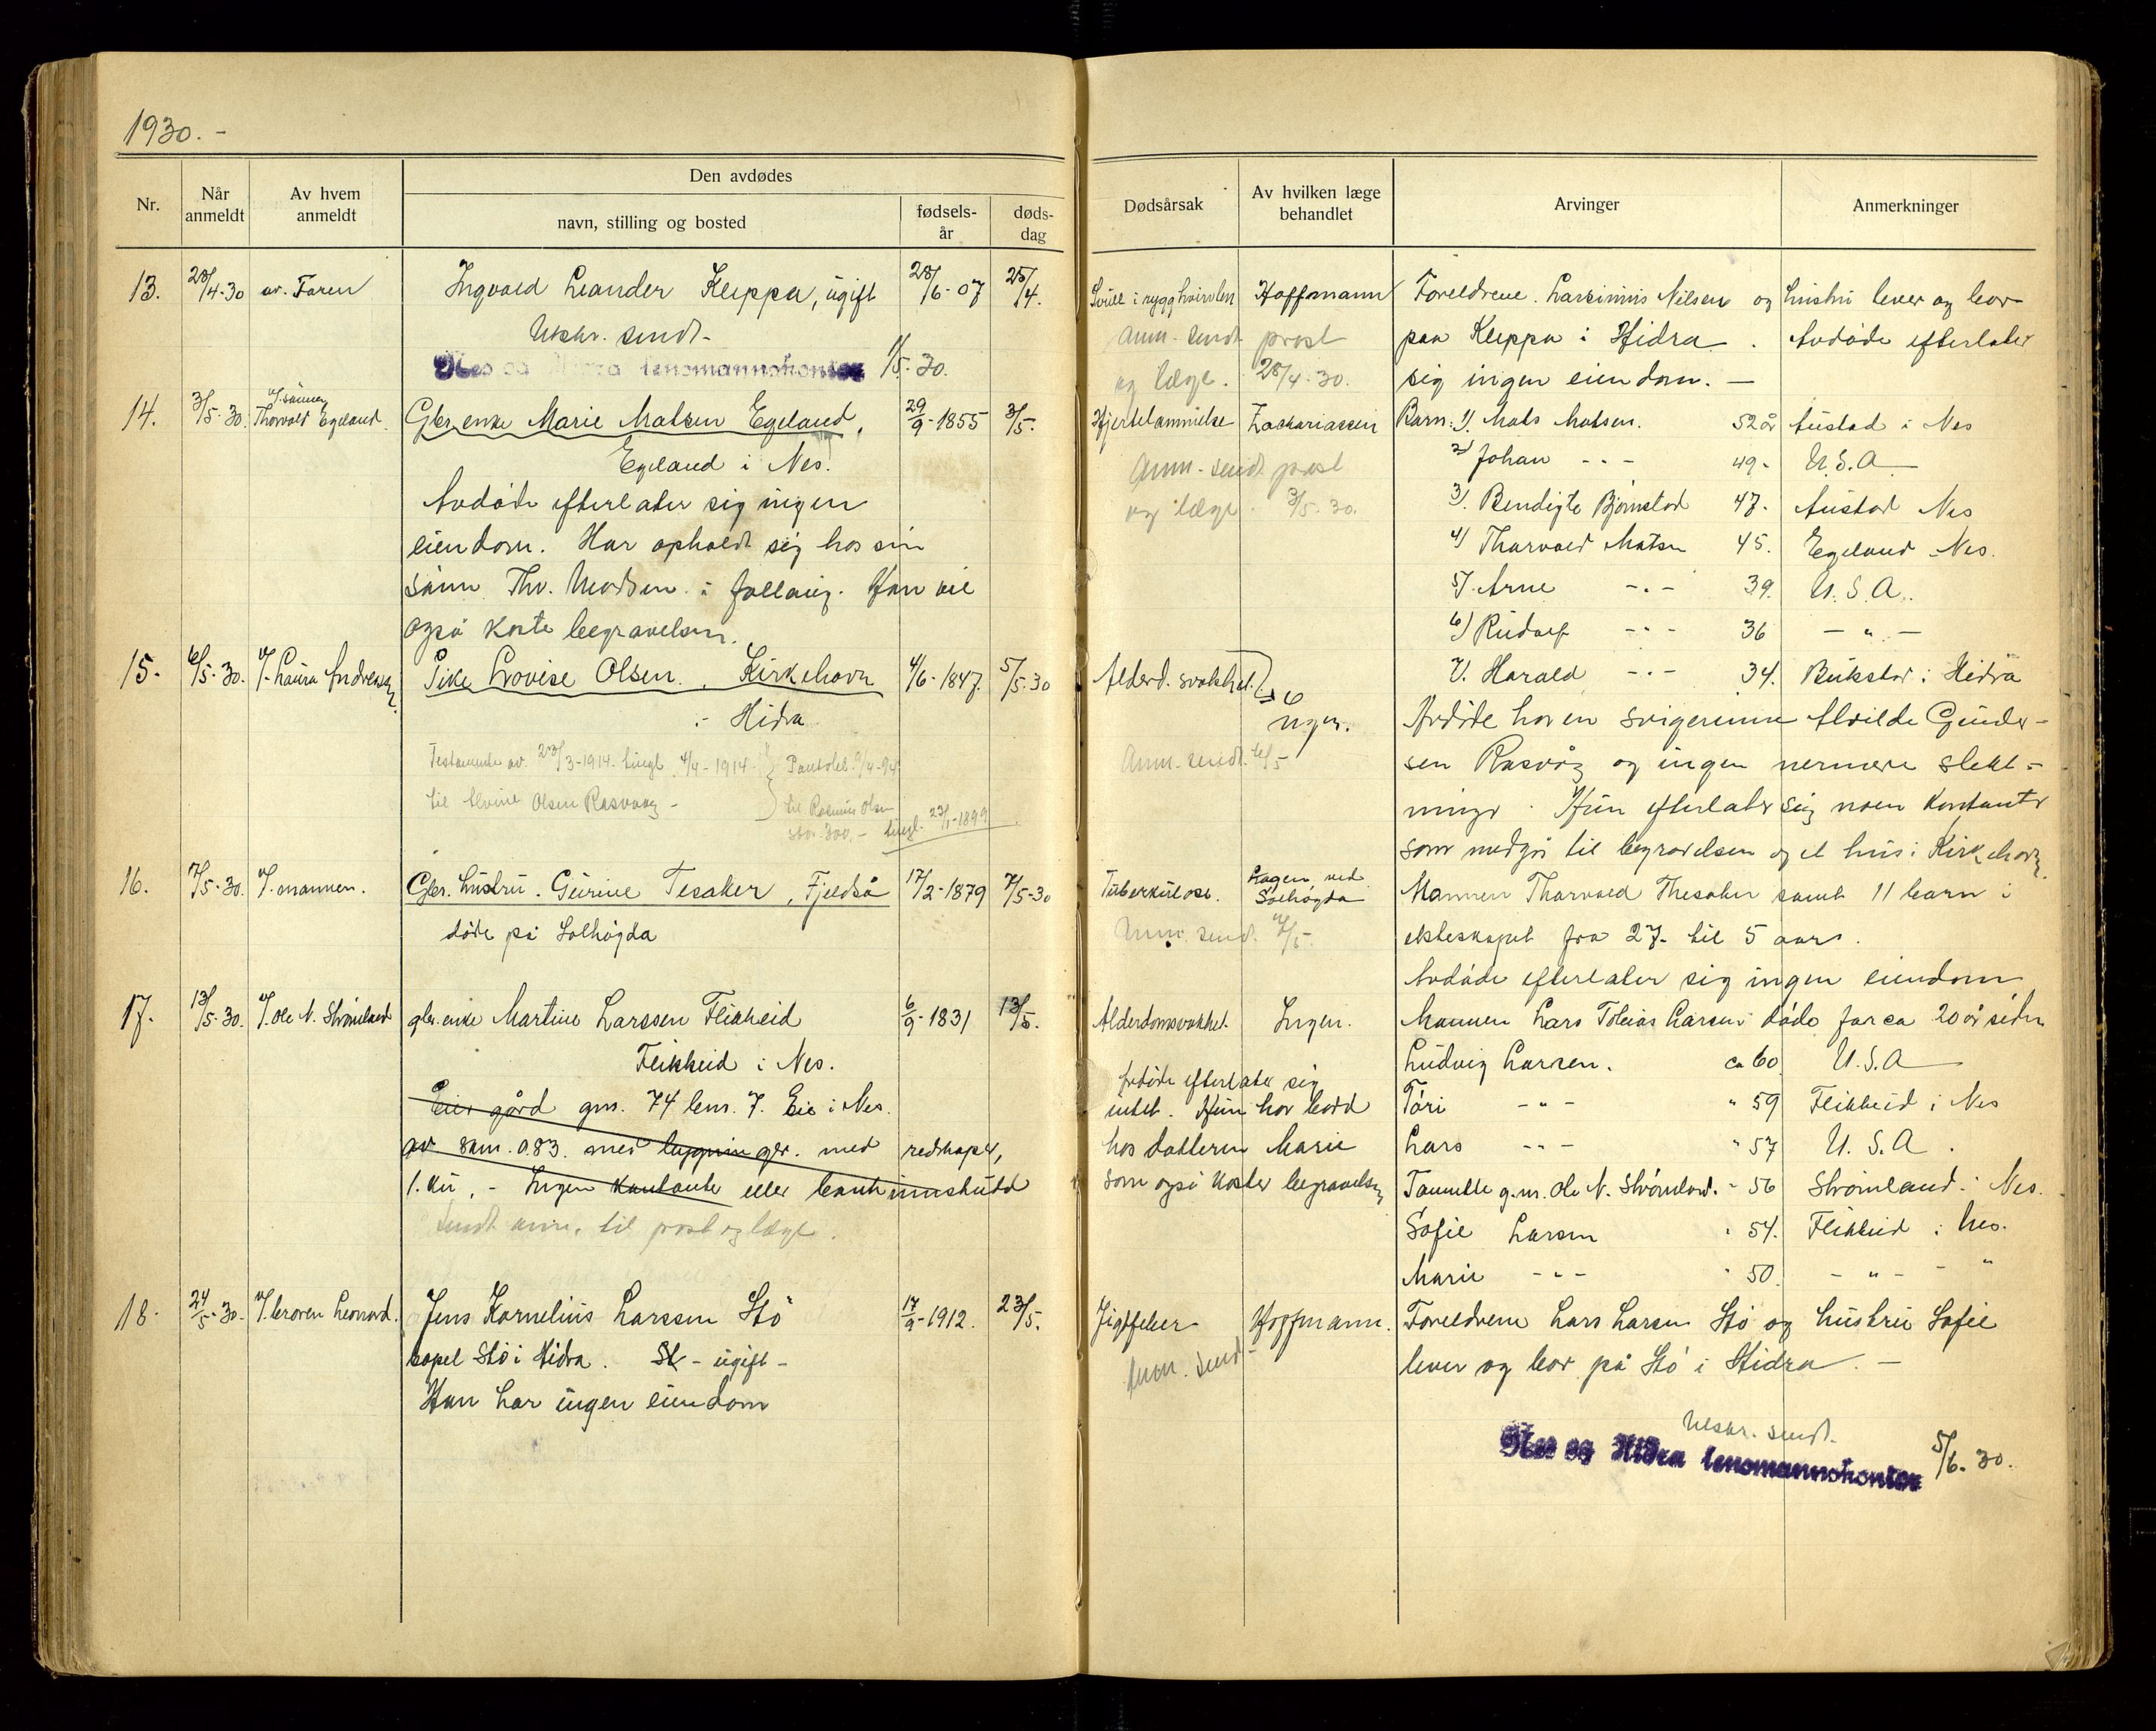 1930. -
Nr.
Når anmeldt
Av hvem anmeldt
Den avdødes
navn, stilling og bosted
fødselsår
dødsdag
Dødsårsak
Av hvilken læge behandlet
Arvinger
Anmerkninger
13. 28/4-30 av. Faren Ingvald Leander Kleppa, ugift 28/6-07 25/4.
Utskr. sendt.
Nes og Hidra lensmannskontor 1/5.30.
i rygghvirvlen Hoffmann Foreldrene. Nilsen og hustru lever og bor
Anm. sendt prost paa Kleppa i Hidra. Avdøde efterlater
og læge. 28/4.30. sig ingen eiendom. -
14. 3/5-30. v/ sønnen Thorvald Egeland. Gbr. enke Marie Matsen Egeland, 29/9-1855 3/5.
Egeland i Nes.
Avdøde efterlater sig ingen
eiendom. Har opholdt sig hos sin
sønn Thv. Madsen i follaug. Han vil
også koste begravelsen.
Hjertelammelse Zachariassen Barn: 1). Mats Matsen. 52 år Austad i Nes
Anm. sendt prost 2) Johan - " - 49 - U.S.A
og læge. 3/5.30. 3). Bendigte Bjørnstad 47. Austad Nes
4) Thorvald Matsen 45. Egeland Nes.
5). Arne - " - 39. U.S.A.
6) Rudolf - " - 36 - " -
7). Harald - " - 34. Bukstad i Hidra
15. 6/5-30. v/ Laura Andresen. Pike Lovise Olsen. Kirkehavn 4/6-1847. 5/5-30
i Hidra
Testamente av 23/3-1914. tingl. 4/4-1914. Pantobl. 9/4-94
til Olsen Rasvaag - til Rasmus Olsen
stor 300.- tingl. 23/1-1899
Alderd. svakhet. Ingen. Avdøde har en svigerinne Alvilde Gunder-
Anm. sendt. 6/5 sen Rasvåg og ingen nermere slekt-
ninger. Hun efterlater sig noen kontanter
som medgår til begravelsen og et hus i Kirkehavn.
16. 7/5-30. v/ mannen. Gbr. hustru. Gurine Tesaker, Fjeldså 17/2-1879 7/5-30
døde på Solhøgda
Tuberkulose. Lægen ved Solhøgda Mannen Thorvald Thesaker samt 11 barn i
Anm. sendt. 7/5. ekteskapet fra 27- til 5 aar.
Avdøde efterlater sig ingen eiendom
17. 13/5-30. v/ Ole N. Strømland gbr. enke Martine Larssen Flikkeid 6/9-1831 13/5.
Flikkeid i Nes.
Eier gård gnr. 74 bnr. 7. Eie i Nes.
av skm. 0.83. med bygninger. med redskaper,
1. ku, - Ingen kontanter eller bankinnskudd
Sendt anm. til prost og læge.
Alderdomsvakhet. Ingen. Mannen Lars Tobias Larsen døde for ca 20 år siden
Avdøde efterlater sig
intet. Hun har bodd
hos datteren Marie
som også koster begravelsen
Ludvig Larsen. ca 60 U.S.A
Tøri - " - " 59 Flikkeid i Nes
Lars - " - " 57 U.S.A.
Tomelle g.m. Ole N. Strømland. " 56 Strømland i Nes.
Sofie Larsen " 54. Flikkeid i Nes.
Marie - " - " 50. - " - "
18. 24/5-30. v/ broren Leonard. Jens Kornelius Larssen Stø 17/9-1912. 23/5.
bopel Stø i Hidra. St - ugift -
Han har ingen eiendom
Gigtfeber Hoffmann. Foreldrene Lars Larsen Stø og hustru Sofie
Anm. sendt - lever og bor på Stø i Hidra. -
Utskr. sendt.
Nes og Hidra lensmannskontor 5/6.30.